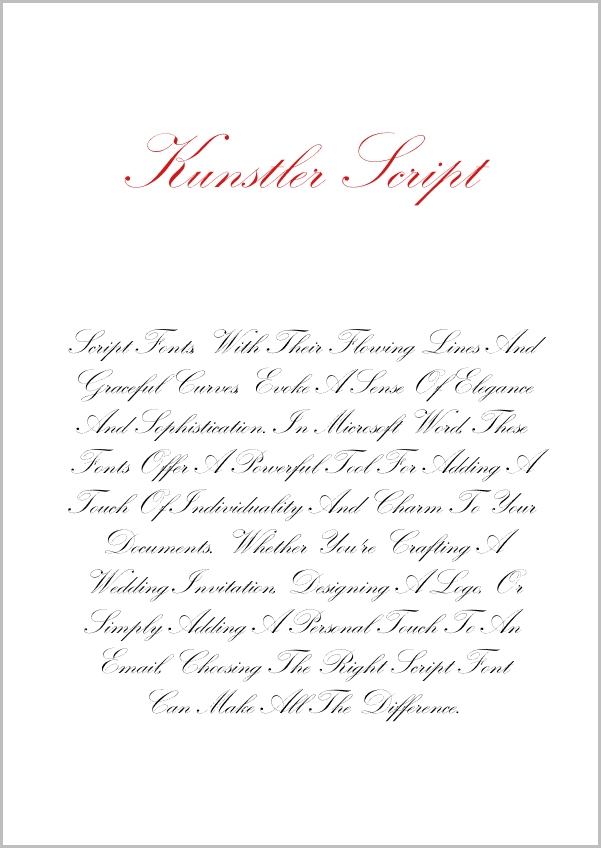 Kunstler Script
Script Fonts, With Their Flowing Lines And
Graceful Curves, Evoke A Sense Of Elegance
And Sophistication. In Microsoft Word, These
Fonts Offer A Powerful Tool For Adding A
Touch Of Individuality And Charm To Your
Documents. Whether You're Crafting A
Wedding Invitation, Designing A Logo, Or
Simply Adding A Personal Touch To An
Email, Choosing The Right Script Font
Can Make All The Difference.